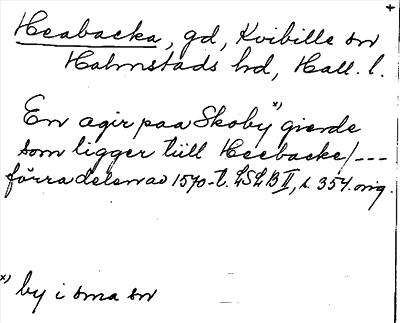 Heabacka, gd, Kvibille sn
Halmstads hd, Hall. l.
En agir paa Skoby x) gierde
som ligger till Heebacke/---
förra delen av 1570-t. LSLB II, s. 354. orig.
x) by i sma sn